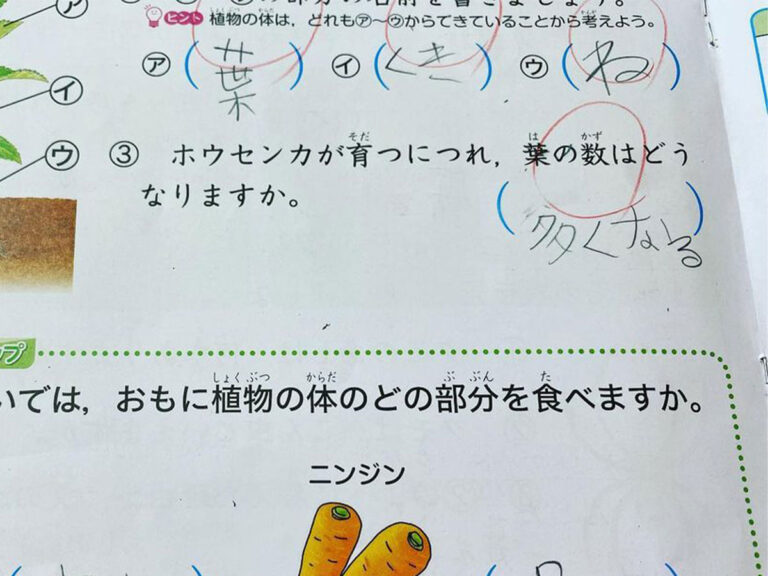 の部分の名前を書きましょう。
ヒント 植物の体は，どれも㋐〜㋒からできていることから考えよう。
㋐ （葉） ㋑ （くき） ㋒ （ね）
㋐
㋑
㋒
③ ホウセンカが育つにつれ，葉の数はどう
なりますか。
（多くなる）
いでは，おもに植物の体のどの部分を食べますか。
ニンジン